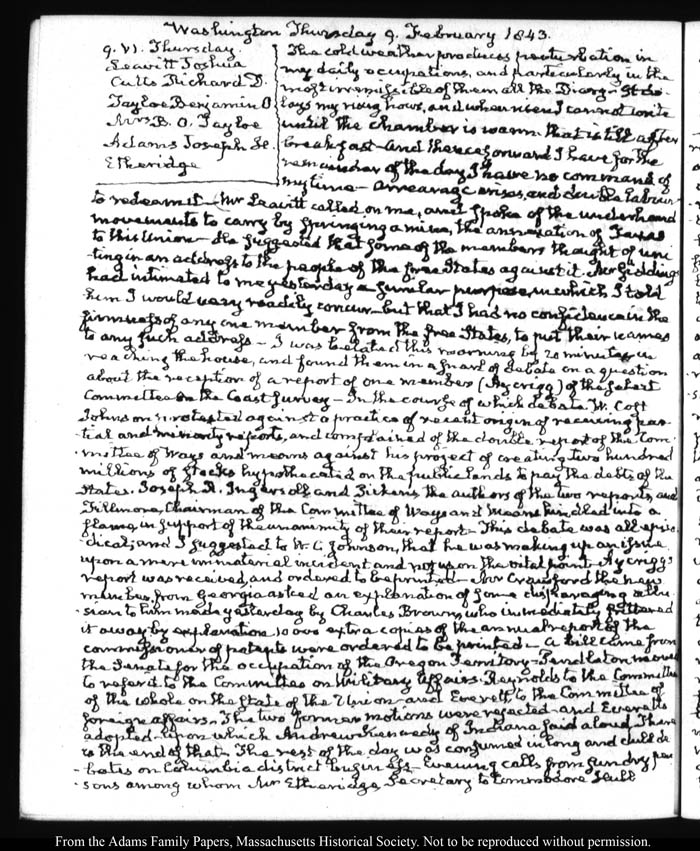 Washington Thursday 9. February 1843.
9. VI. Thursday.
Leavitt Joshua
Cutts Richard D.
Tayloe Benjamin O
Mrs B. O. Tayloe
Adams Joseph H.
Etheridge
The cold weather produces perturbation in
my daily occupations, and particularly in the
most irremissible of them all the Diary — It de-
lays my rising hour, and when risen I cannot write
until the chamber is warm that is till after
breakfast — and thenceforward I have for the
remainder of the day I have no command of
my time — arrearage arises, and double labour
to redeem it — Mr Leavitt called on me, and spoke of the underhand
movements to carry by springing a mine, the annexation of Texas
to this Union — He suggested that some of the members thought of uni-
ting in an address to the people of the free States against it. Mr Giddings
had intimated to me yesterday a similar purpose, in which I told
him I would very readily concur — but that I had no confidence in the
firmness of any one member from the free States, to put their names
to any such address — I was belated this morning by 20 minutes in
reaching the house, and found them in a snarl of debate on a question
about the reception of a report of one member (Aycrigg) of the select
Committee on the Coast Survey — In the course of which debate W. Cost
Johnson protested against a practice of recent origin of receiving par-
tial and minority reports, and complained of the double report of the Com-
mittee of Ways and means against his project of creating two hundred
millions of Stocks hypothecated on the public lands to pay the debts of the
States. Joseph R. Ingersoll and Pickens, the authors of the two reports, and
Fillmore, Chairman of the Committee of Ways and Means kindled into a
flame, in support of the unanimity of their report — This debate was all episo-
dical; and I suggested to W. C. Johnson, that he was making up an issue
upon a mere immaterial incident and not upon the vital point. Aycrigg's
report was received, and ordered to be printed — Mr Crawford the new
member from Georgia asked an explanation of some disparaging allu-
sion to him made yesterday by Charles Brown, who immediately frittered
it away by explanation. 10000 extra copies of the annual report of the
commissioner of patents were ordered to be printed — a bill came from
the Senate for the occupation of the Oregon Territory — Pendleton moved
to refer it to the Committee on Military Affairs. Reynolds to the Committee
of the whole on the State of the Union — and Everett to the Committee of
foreign affairs. The two former motions were rejected and Everett's
adopted — upon which Andrew Kennedy of Indiana, said aloud, There
is the end of that — The rest of the day was consumed in long and dull de-
bates on Columbia district business — Evening calls from sundry per-
sons among whom Mr Etheridge, Secretary to Commodore Hull
From the Adams Family Papers, Massachusetts Historical Society. Not to be reproduced without permission.